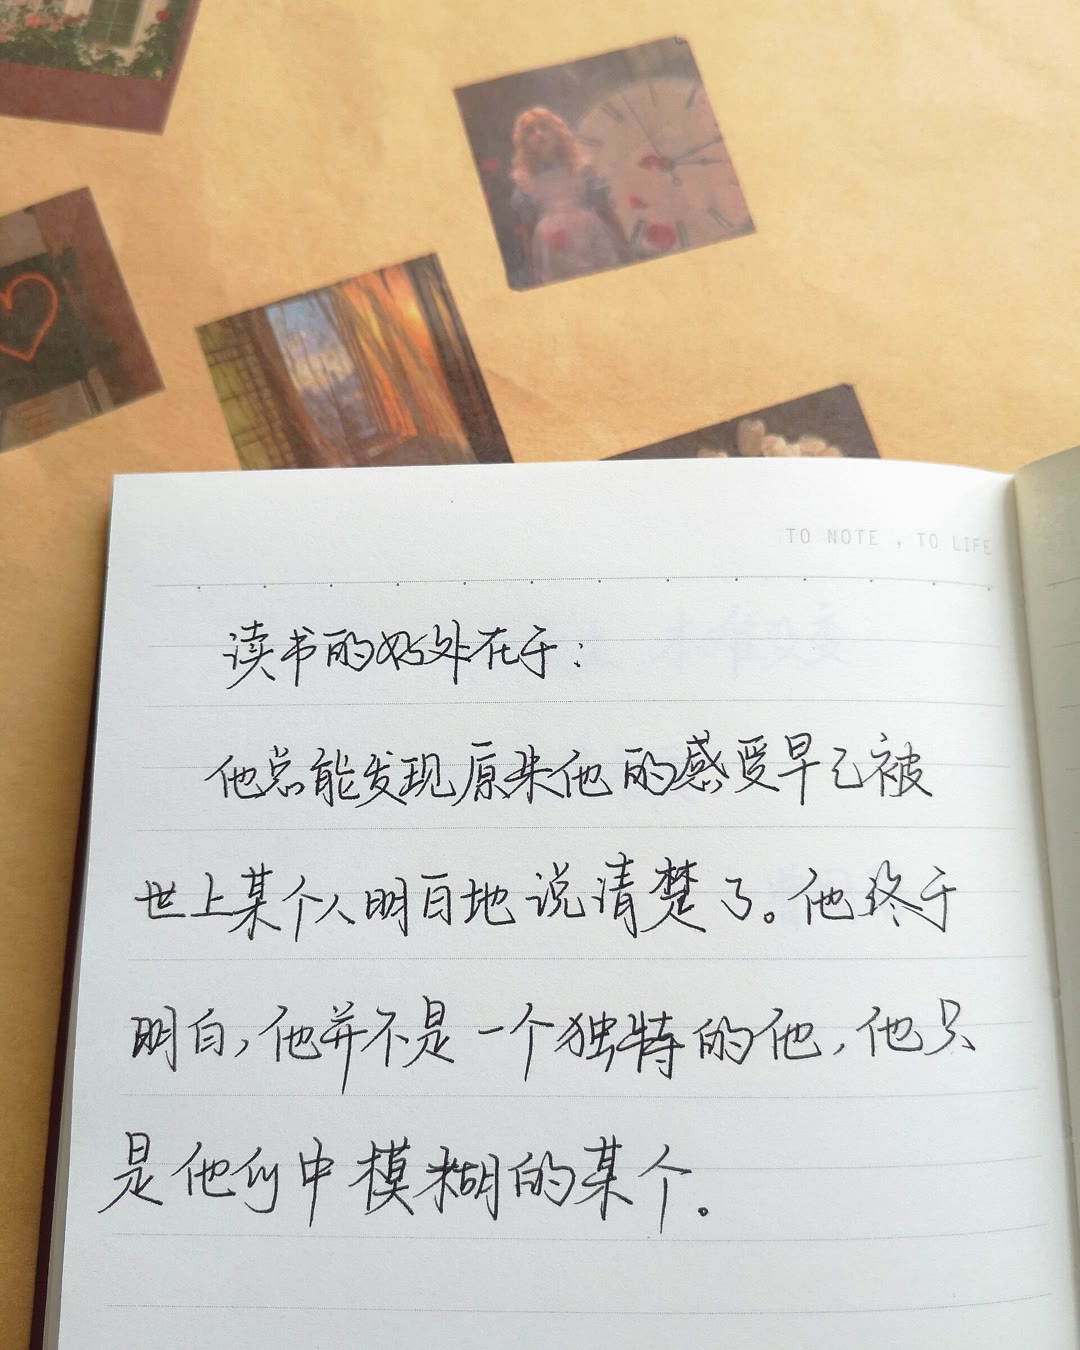 TO NOTE , TO LIFE
读书的好处在于：
他总能发现原来他的感受早已被
世上某个人明白地说清楚了。他终于
明白，他并不是一个独特的他，他只
是他们中模糊的某个。